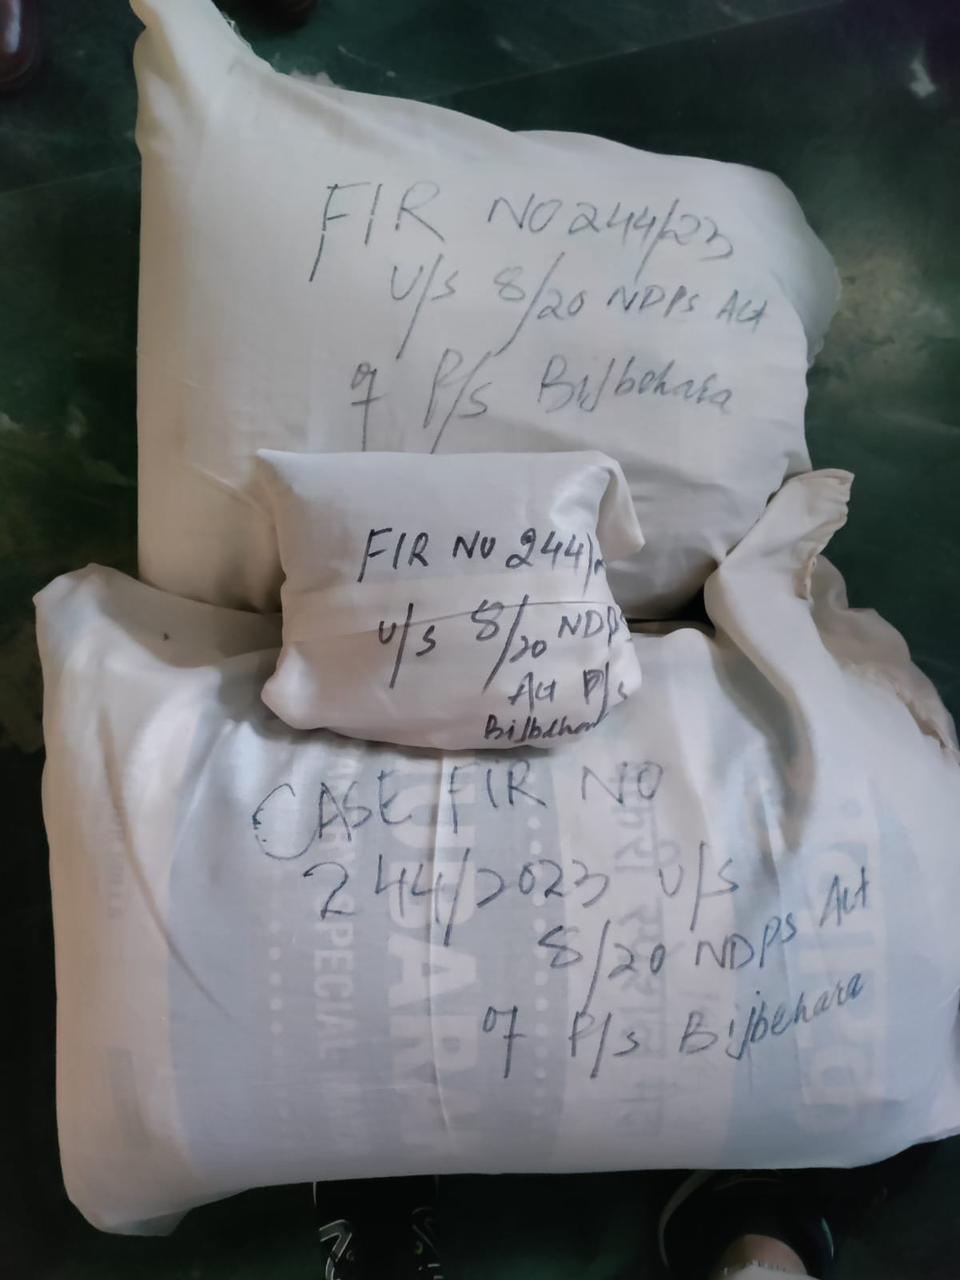 FIR NO 244/23
U/S 8/20 NDPS Act
of P/S Bijbehara
FIR NO 244/
U/S 8/20 NDPS
Act P/S
Bijbehara
CASE FIR NO
244/2023 U/S
8/20 NDPS Act
of P/S Bijbehara
SPECIAL